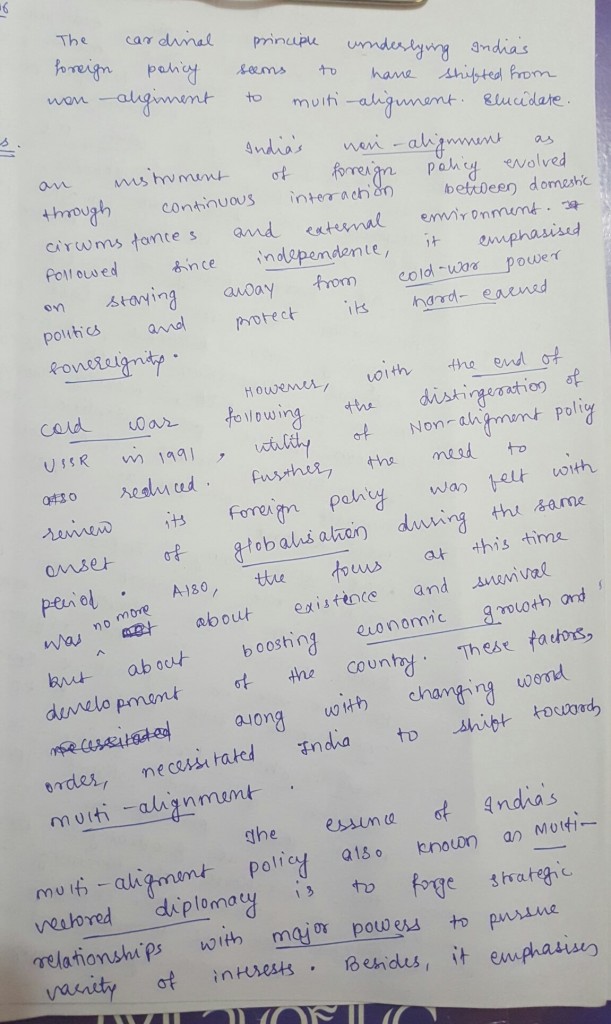 6
The cardinal principle underlying India's
foreign policy seems to have shifted from
non-alignment to multi-alignment. Elucidate.
s.
India's non-alignment as
an instrument of foreign policy evolved
through continuous interaction between domestic
circumstances and external environment.
followed since independence, it emphasised
on staying away from cold-war power
politics and protect its hard-earned
sovereignty.
However, with the end of
cold war following the distingeration of
USSR in 1991, utility of Non-aligment policy
reduced. Further, the need to
review its foreign policy was felt with
onset of globalisation during the same
period. Also, the focus at this time
was no more about existence and survival
but about boosting economic growth and
development of the country. These factors,
along with changing world
order, necessitated India to shift towards
multi-alignment.
The essence of India's
multi-aligment policy also known as Multi-
vectored diplomacy is to forge strategic
relationships with major powers to pursue
variety of interests. Besides, it emphasises